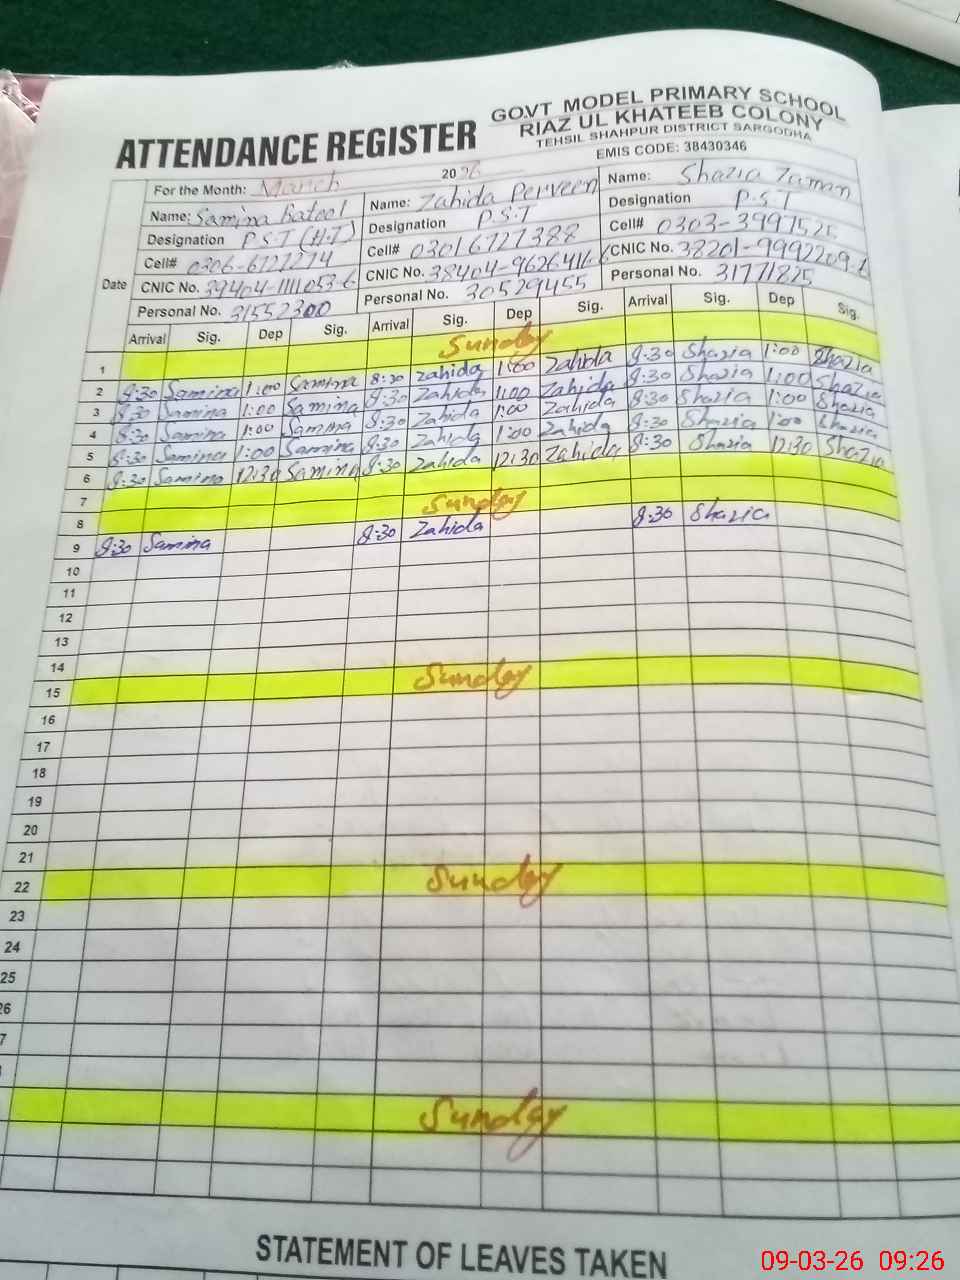 GOVT MODEL PRIMARY SCHOOL
RIAZ UL KHATEEB COLONY
TEHSIL SHAHPUR DISTRICT SARGODHA
ATTENDANCE REGISTER
EMIS CODE: 38430346
For the Month: March 2026
Name: Samina Batool Name: Zahida Perveen Name: Shazia Zaman
Designation P.S.T (H.T) Designation P.S.T Designation P.S.T
Cell# 0306-6127274 Cell# 03016727388 Cell# 0303-3997525
CNIC No. 38404-9626416-6 CNIC No. 38201-9992209-6
Personal No. 31552300 Personal No. 30529455 Personal No. 31771825
Date
Arrival Sig. Dep Sig. Arrival Sig. Dep Sig. Arrival Sig. Dep Sig.
1 Sunday
2 8:30 Samina 1:00 Samina 8:30 Zahida 1:00 Zahida 8:30 Shazia 1:00 Shazia
3 8:30 Samina 1:00 Samina 8:30 Zahida 1:00 Zahida 8:30 Shazia 1:00 Shazia
4 8:30 Samina 1:00 Samina 8:30 Zahida 1:00 Zahida 8:30 Shazia 1:00 Shazia
5 8:30 Samina 1:00 Samina 8:30 Zahida 1:00 Zahida 8:30 Shazia 1:00 Shazia
6 8:30 Samina 12:30 Samina 8:30 Zahida 12:30 Zahida 8:30 Shazia 12:30 Shazia
7
8 Sunday
9 8:30 Samina 8:30 Zahida 8:30 Shazia
10
11
12
13
14
15 Sunday
16
17
18
19
20
21
22 Sunday
23
24
25
26
7
Sunday
STATEMENT OF LEAVES TAKEN
09-03-26 09:26